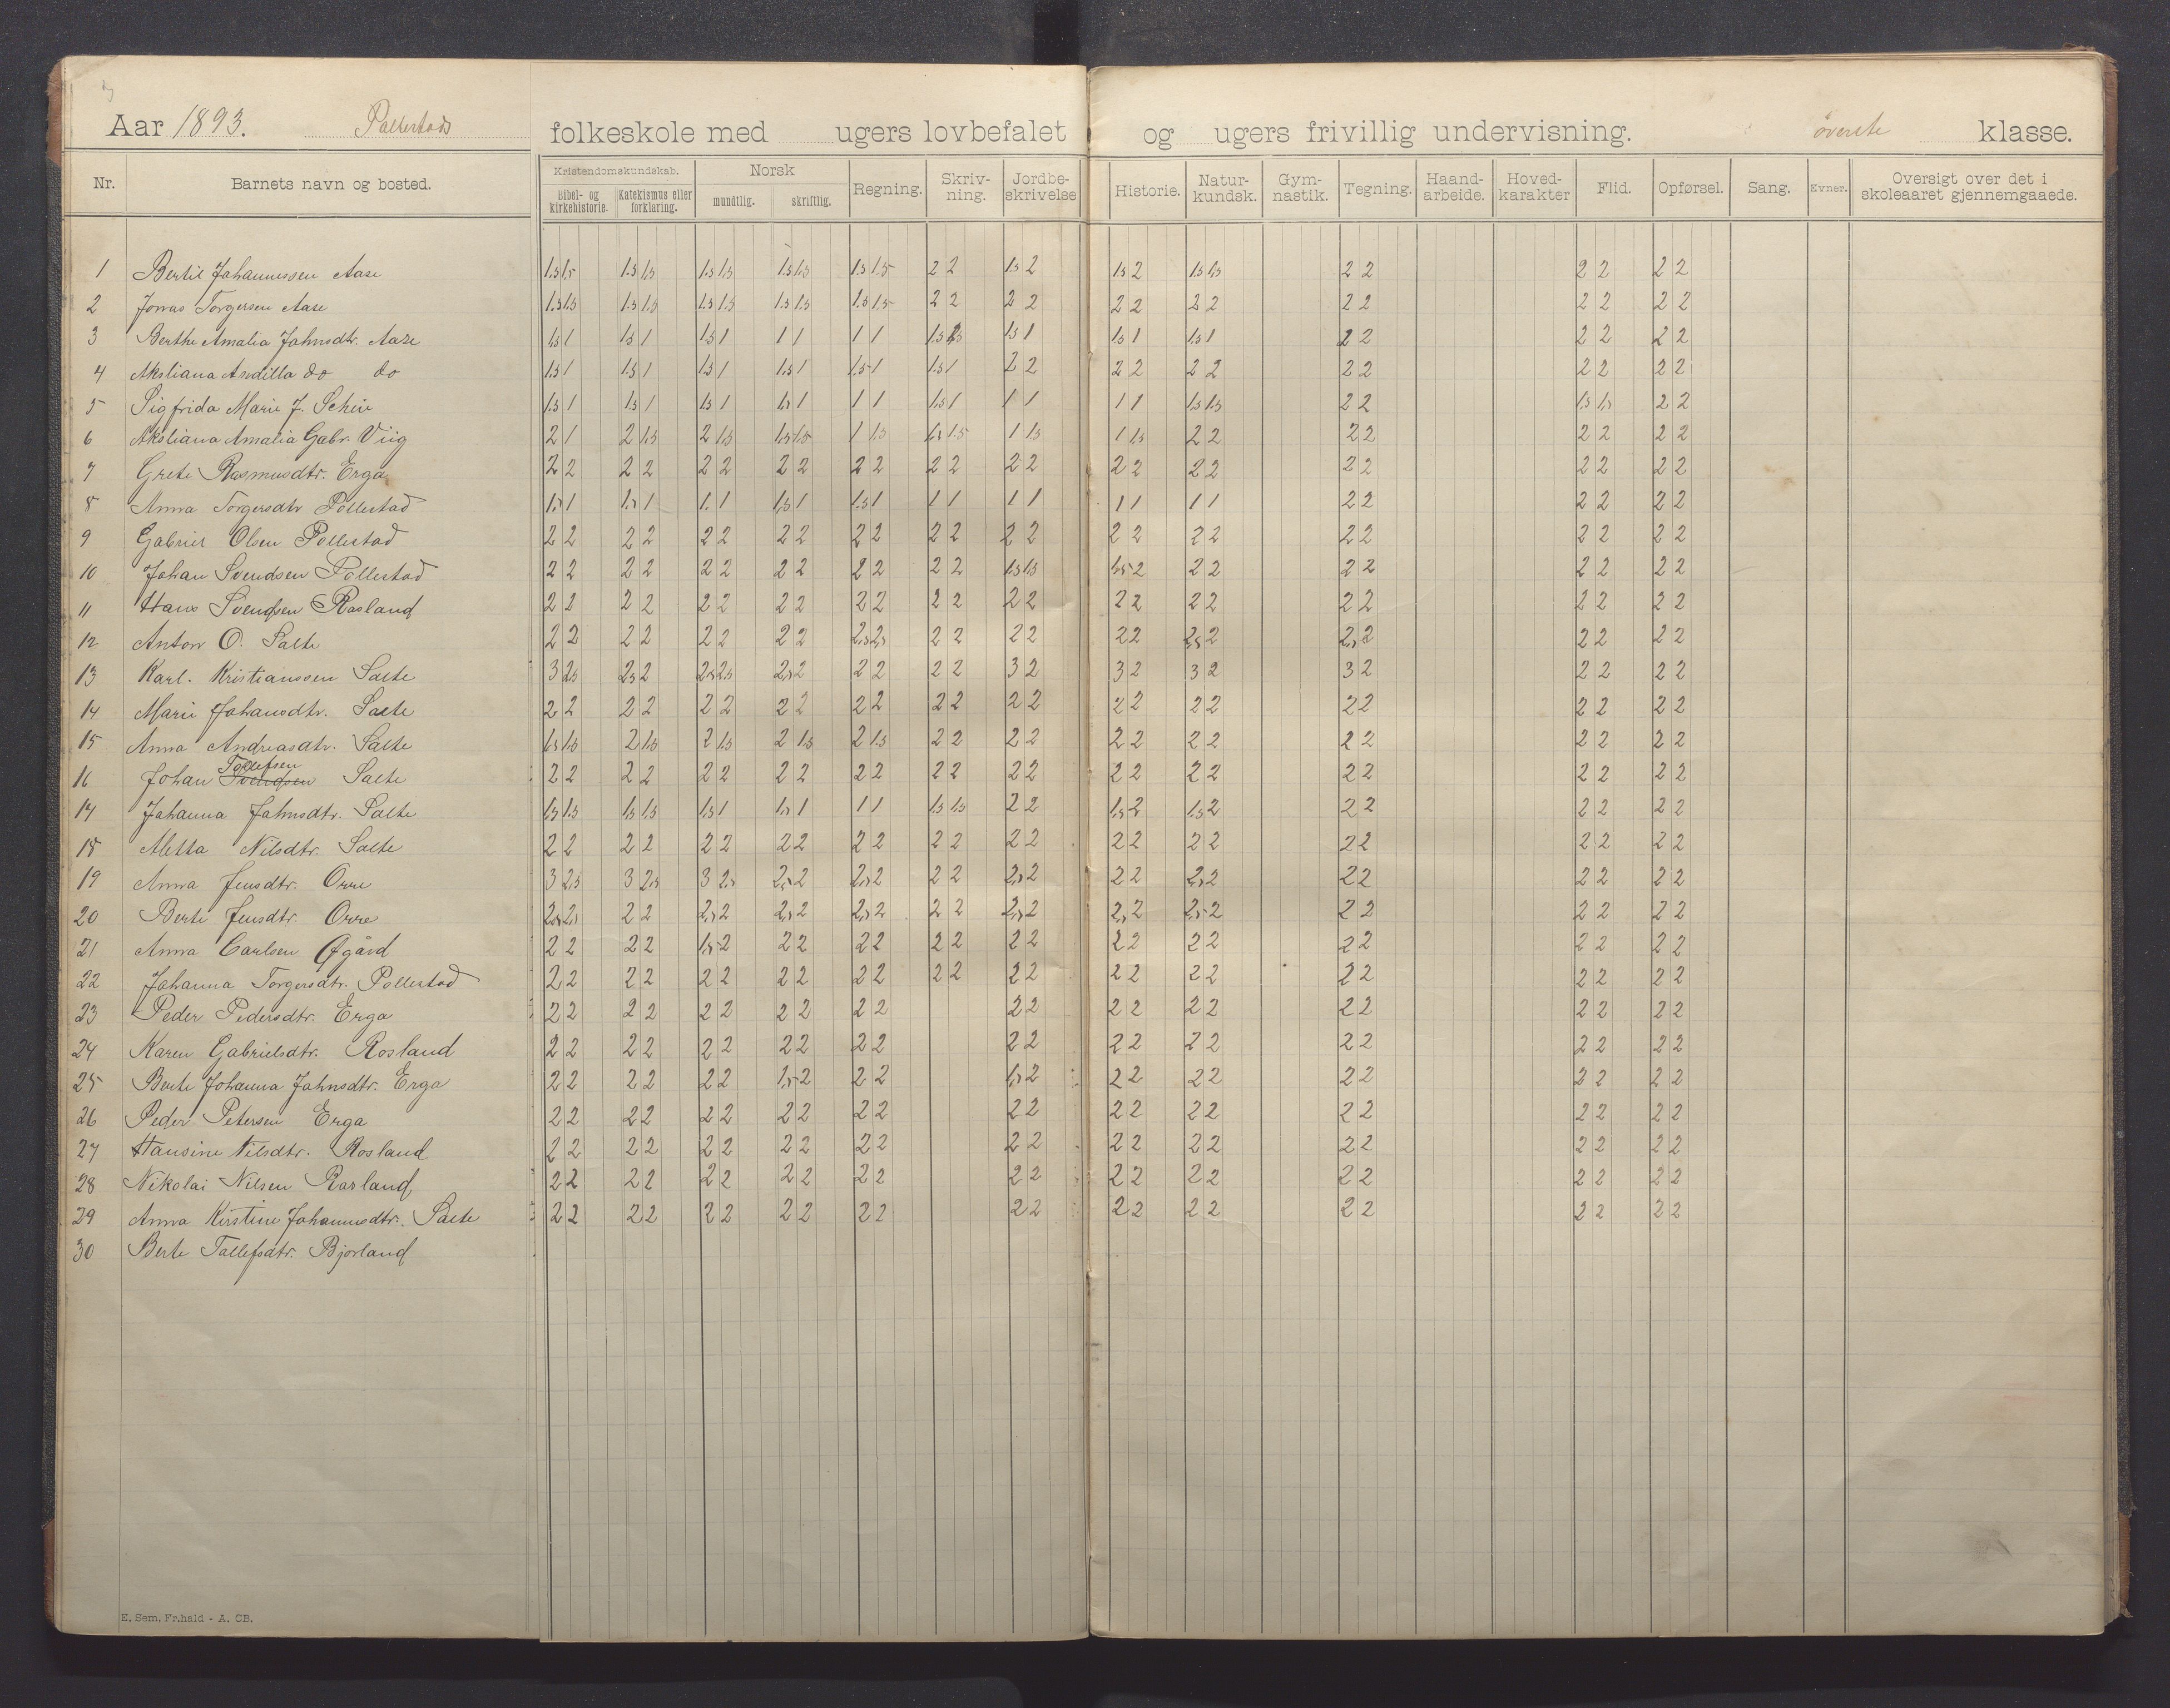 Aar 1893. Pollestads folkeskole med ugers lovbefalet og ugers frivillig undervisning. øverste klasse.
Nr. Barnets navn og bosted. Kristendomskundskab. Bibel- og kirkehistorie. Katekismus eller forklaring. Norsk mundtlig. skriftlig. Regning. Skriv-ning. Jordbe-skrivelse Historie. Natur-kundsk. Gym-nastik. Tegning. Haand-arbeide. Hoved-karakter Flid. Opførsel. Sang. Evner. Oversigt over det i skoleaaret gjennemgaaede.
1 Bertil Johannessen Aase 1.5 1.5 1.5 1.5 1.5 1.5 1.5 1.5 1.5 1.5 2 2 1.5 2 1.5 2 1.5 1.5 2 2 2 2 2 2
2 Jonas Torgersen Aase 1.5 1.5 1.5 1.5 1.5 1.5 1.5 1.5 1.5 1.5 2 2 2 2 2 2 2 2 2 2 2 2 2 2
3 Berthe Amalia Jahnsdtr. Aase 1.5 1 1.5 1 1.5 1 1 1 1 1 1.5 1.5 1.5 1 1.5 1 1.5 1 2 2 2 2 2 2
4 Aksliana Asdilla do do 1.5 1 1.5 1 1.5 1 1.5 1 1.5 1 1.5 1 2 2 2 2 2 2 2 2 2 2 2 2
5 Sigfrida Marie J. Scheie 1.5 1 1.5 1 1.5 1 1.5 1 1 1 1.5 1 1 1 1 1 1.5 1.5 2 2 1.5 1.5 2 2
6 Aksliana Amalia Gabr. Viig 2 1 2 1.5 2 1.5 1.5 1.5 1 1.5 1.5 1.5 1 1.5 1 1.5 2 2 2 2 2 2 2 2
7 Grete Rasmusdtr. Erga 2 2 2 2 2 2 2 2 2 2 2 2 2 2 2 2 2 2 2 2 2 2 2 2
8 Anna Torgersdtr Pollestad 1.5 1 1.5 1 1 1 1.5 1 1.5 1 1 1 1 1 1 1 1 1 2 2 2 2 2 2
9 Gabriel Olsen Pollestad 2 2 2 2 2 2 2 2 2 2 2 2 2 2 2 2 2 2 2 2 2 2 2 2
10 Johan Svendsen Pollestad 2 2 2 2 2 2 2 2 2 2 2 2 1.5 1.5 1.5 2 2 2 2 2 2 2 2 2
11 Hans Svendsen Rosland 2 2 2 2 2 2 2 2 2 2 2 2 2 2 2 2 2 2 2 2 2 2 2 2
12 Anton O. Salte 2 2 2 2 2 2 2 2 2,5 2,5 2 2 2 2 2 2 2,5 2 2,5 2 2 2 2 2
13 Karl. Kristianssen Salte 3 2.5 2.5 2 2.5 2.5 2.5 2 2 2 2 2 3 2 3 2 3 2 3 2 2 2 2 2
14 Marie Johansdtr. Salte 2 2 2 2 2 2 2 2 2 2 2 2 2 2 2 2 2 2 2 2 2 2 2 2
15 Anna Andreasdtr. Salte 1.5 1.5 2 1.5 2 1.5 2 1.5 2 1.5 2 2 2 2 2 2 2 2 2 2 2 2 2 2
Tollefsen
16 Johan Svendsen Salte 2 2 2 2 2 2 2 2 2 2 2 2 2 2 2 2 2 2 2 2 2 2 2 2
17 Johanna Jahnsdtr. Salte 1.5 1.5 1.5 1.5 1.5 1 1.5 1 1 1 1.5 1.5 2 2 1.5 2 1.5 2 2 2 2 2 2 2
18 Metta Nilsdtr. Salte 2 2 2 2 2 2 2 2 2 2 2 2 2 2 2 2 2 2 2 2 2 2 2 2
19 Anna Jensdtr. Orre 3 2.5 3 2.5 3 2.5 2.5 2 2.5 2 2 2 2.5 2 2 2 2.5 2 2 2 2 2 2 2
20 Berte Jensdtr. Orre 2.5 2.5 2 2 2.5 2 2.5 2 2.5 2 2 2 2.5 2 2.5 2 2.5 2 2 2 2 2 2 2
21 Anna Carlsen Øgård 2 2 2 2 1.5 2 2 2 2 2 2 2 2 2 2 2 2 2 2 2 2 2 2 2
22 Johanna Torgersdtr. Pollestad 2 2 2 2 2 2 2 2 2 2 2 2 2 2 2 2 2 2 2 2 2 2 2 2
23 Peder Pedersdtr. Erga 2 2 2 2 2 2 2 2 2 2 2 2 2 2 2 2 2 2 2 2 2 2
24 Karen Gabrielsdtr. Rosland 2 2 2 2 2 2 2 2 2 2 2 2 2 2 2 2 2 2 2 2 2 2
25 Berte Johanna Jahnsdtr. Erga 2 2 2 2 2 2 1.5 2 2 2 1.5 2 2 2 2 2 2 2 2 2 2 2
26 Peder Petersen Erga 2 2 2 2 2 2 2 2 2 2 2 2 2 2 2 2 2 2 2 2 2 2
27 Hansine Nilsdtr. Rosland 2 2 2 2 2 2 2 2 2 2 2 2 2 2 2 2 2 2 2 2 2 2
28 Nikolai Nilsen Rosland 2 2 2 2 2 2 2 2 2 2 2 2 2 2 2 2 2 2 2 2 2 2
29 Anna Kirstine Johannesdtr. Salte 2 2 2 2 2 2 2 2 2 2 2 2 2 2 2 2 2 2 2 2 2 2
30 Berte Tollefsdtr. Bjorland
E. Sem, Fr.hald - A. CB.